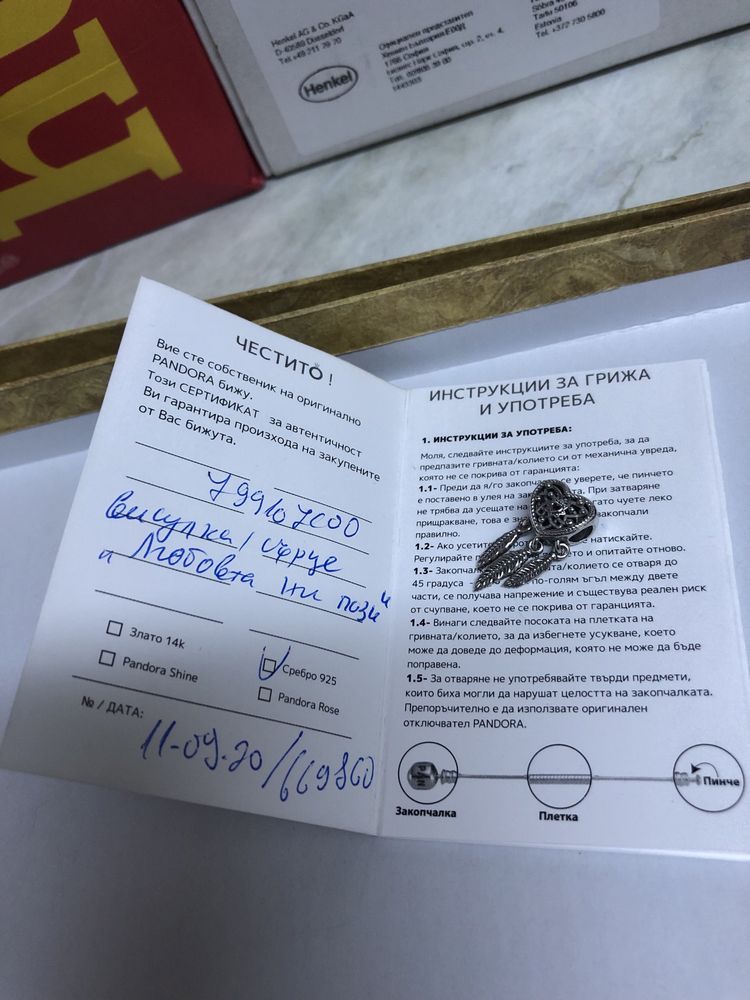 Henkel AG & Co. KGaA
D-40589 Düsseldorf
Henkel
Официален представител
Хенкел България ЕООД
1766 София
Estonia
Tel. +372 730 5800
Tartu 50106
ЧЕСТИТО !
Вие сте собственик на оригинално
PANDORA бижу.
Този СЕРТИФИКАТ за автентичност
Ви гарантира произхода на закупените
от Вас бижута.
799107C00
висулка/сърце
"Любовта ни пази"
Злато 14k
Сребро 925
Pandora Shine
Pandora Rose
№ / ДАТА:
11-09-20/669860
ИНСТРУКЦИИ ЗА ГРИЖА
И УПОТРЕБА
1. ИНСТРУКЦИИ ЗА УПОТРЕБА:
Моля, следвайте инструкциите за употреба, за да
предпазите гривната/колието си от механична увреда,
която не се покрива от гаранцията:
1.1- Преди да я/го закопчаете се уверете, че пинчето
е поставено в улея на зак та. При затваряне
не трябва да усещате на гато чуете леко
прищракване, това е зн закопчали
правилно.
1.2- Ако усетите рот натискайте.
Регулирайте то и опитайте отново.
1.3- Закопчал та/колието се отваря до
45 градуса по-голям ъгъл между двете
части, се получава напрежение и съществува реален риск
от счупване, което не се покрива от гаранцията.
1.4- Винаги следвайте посоката на плетката на
гривната/колието, за да избегнете усукване, което
може да доведе до деформация, която не може да бъде
поправена.
1.5- За отваряне не употребявайте твърди предмети,
които биха могли да нарушат целостта на закопчалката.
Препоръчително е да използвате оригинален
отключвател PANDORA.
Закопчалка
Плетка
Пинче